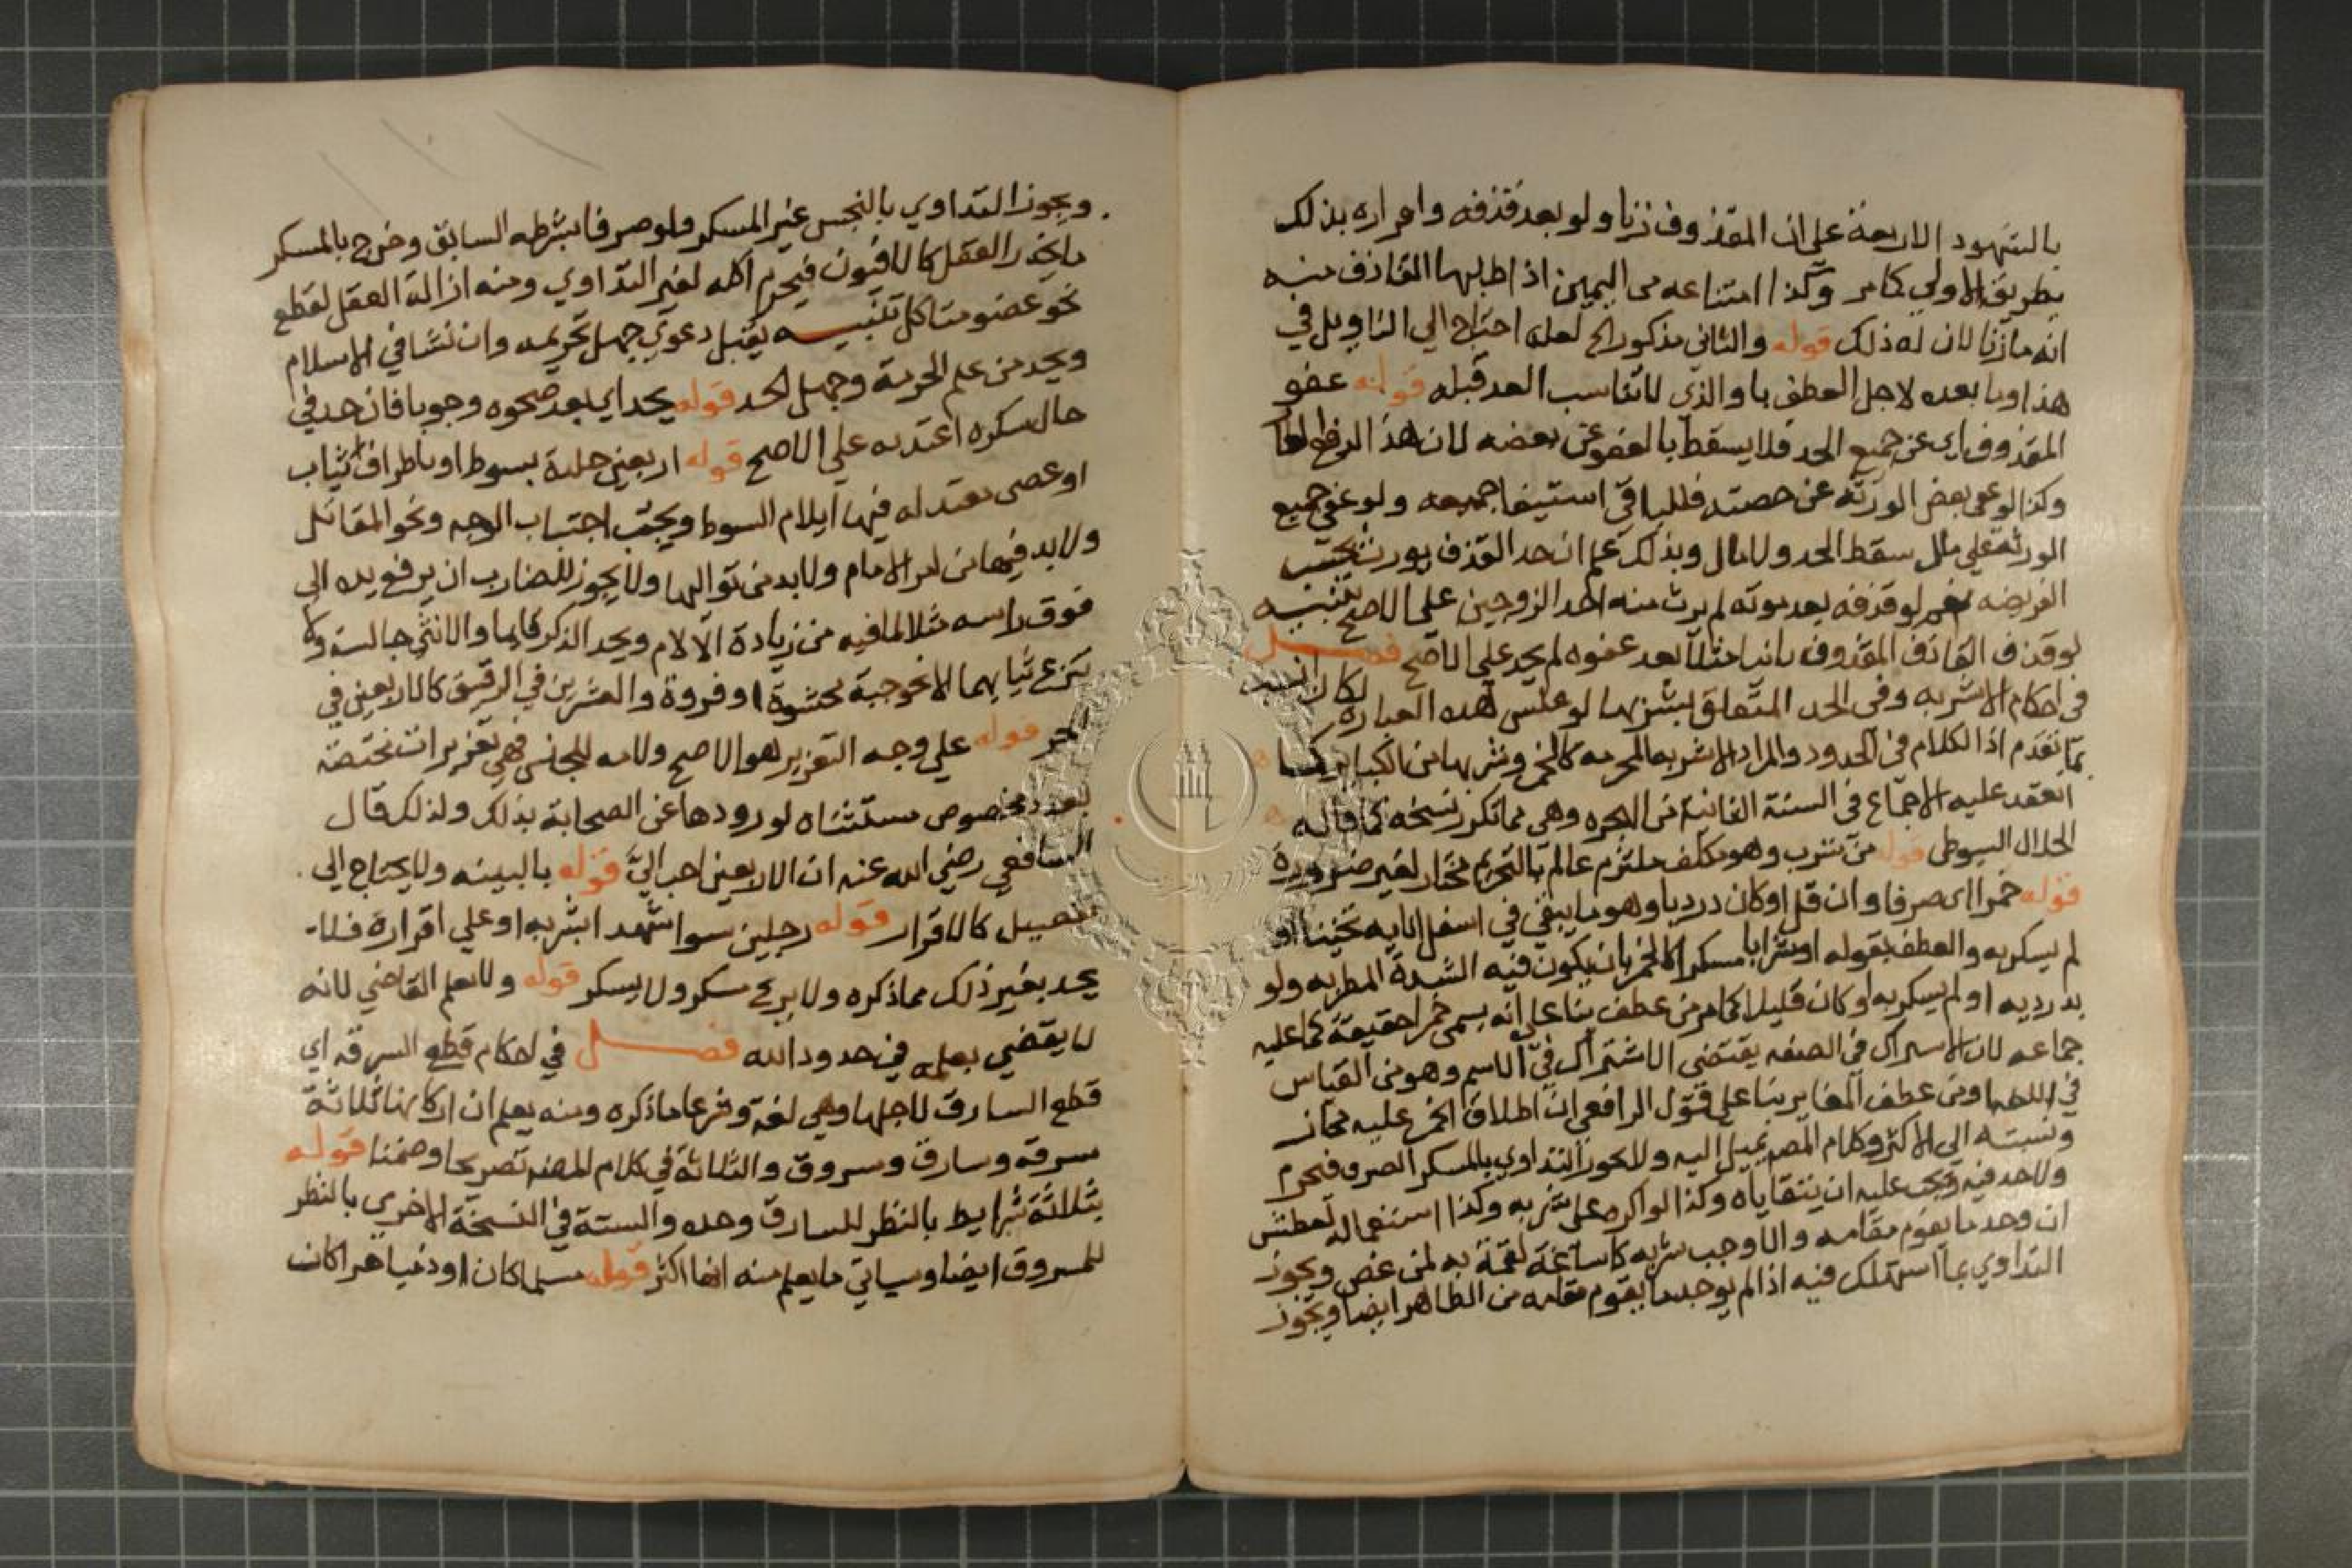 بالشهود الاربعة على ان المقذوف زنا ولو بعد قذفه واقراره بذلك
بطريق الاولي كما مر وكذا امتناعه من اليمين اذا طلبها القاذف منه
انه ما زنا لان له ذلك قوله والثاني مذكور الخ لعله احتاج الي التاويل في
هذا وما بعده لاجل العطف باو الذي لا تناسب العد قبله قوله عفو
المقذوف اي عن جميع الحد فلا يسقط بالعفو عن بعضه لان هذا
وكذا لو عفى بعض الورثه عن حصته فللباقي استيفا جميعه ولو عفي جميع
الورثة علي مال سقط الحد ولا مال وبذلك علم ان حد القذف يورث بحسب
الفريضه نعم لو قذفه بعد موته لم يرث منه احد الزوجين على الاصح تنبيه
لو قذف القاذف المقذوف ثانيا مثلا بعد عفوه لم يحد على الاصح فصل
في احكام الاشربه وفي الحد المتعلق بشربها لو عكس هذه العباره لكان انسب
بما تقدم اذ الكلام في الحدود والمراد الاشربه المحرمه كالخمر وشربها من الكباير كما
انعقد عليه الاجماع في السنة الثانية من الهجره وهي مما تكرر نسخه كما قاله
الجلال السيوطى قوله من شرب وهو مكلف ملتزم عالم بالتحريم مختار لغير ضرورة
قوله خمرا اى صرفا وان قل او كان درديا وهو ما يبقي في اسفل انايه ثخينا او
لم يسكر به والعطف بقوله او شرابا مسكرا كالخمر بان يكون فيه الشدة المطربه ولو
بدرديه او لم يسكر به او كان قليلا كما مر من عطف بنا على انه يسمى خمرا حقيقة كما عليه
جماعه لان الاشتراك في الصفه يقتضى الاشتراك في الاسم وهو من القياس
في اللغه او من عطف المغاير بنا على قول الرافعي ان اطلاق الخمر عليه مجاز
ونسبته الي الاكثر وكلام المصنف يميل اليه ولا يجوز التداوي بالمسكر الصرف فيحرم
ولا حد فيه ويجب عليه ان يتقاياه وكذا لو اكره على شربه وكذا استعماله لعطش
ان وجد ما يقوم مقامه والا وجب شربه كاساغة لقمة به لمن غص ويجوز
التداوي بما استهلك فيه اذا لم يوجد ما يقوم مقامه من الطاهر ايضا ويجوز
ويجوز التداوي بالنجس غير المسكر ولو صرفا بشرطه السابق وخرج بالمسكر
ما يخدر العقل كالافيون فيحرم اكله لغير التداوي ومنه ازالة العقل لقطع
نحو عضو متاكل تنبيه يقبل دعوي جهل تحريمه وان نشا في الاسلام
ويحد من علم الحرمة وجهل الحد قوله يحد اي بعد صحوه وجوبا فان حد في
حال سكره اعتد به علي الاصح قوله اربعين جلدة بسوط او باطراف ثياب
او عصى معتدله فيها ايلام السوط ويجب اجتناب الوجه ونحو المقاتل
ولا بد فيها من امر الامام ولا بد من تواليها ولا يجوز للضارب ان يرفع يده الي
فوق راسه مثلا لما فيه من زيادة الالام ويحد الذكر قايما والانثي جالسة ولا
تنزع ثيابهما الا نحو جبة محشوة او فروة والعشرين في الرقيق كالاربعين في
الحر قوله علي وجه التعزير هو الاصح ولامه للجنس فهي تعزيرات مختصة
بعدد مخصوص مستثناه لورودها عن الصحابة بذلك ولذلك قال
الشافعي رضي الله عنه ان الاربعين احب اليّ قوله بالبينه ولا يحتاج الي
تفصيل كالاقرار قوله رجلين سوا شهدا بشربه او علي اقراره فلا
يحد بغير ذلك مما ذكره ولا بريح سكر ولا بسكر قوله ولا بعلم القاضي لانه
لا يقضي بعلمه في حدود الله فصل في احكام قطع السرقه اي
قطع السارق لاجلها وهي لغة وشرعا ما ذكره ومنه يعلم ان اركانها ثلاثة
سرقه وسارق ومسروق والثلاثة في كلام المصنف تصريحا وضمنا قوله
بثلثة شرايط بالنظر للسارق وحده والستة في النسخة الاخري بالنظر
للمسروق ايضا وسياتي ما يعلم منه انها اكثر قوله مسلما كان او ذميا حرا كان